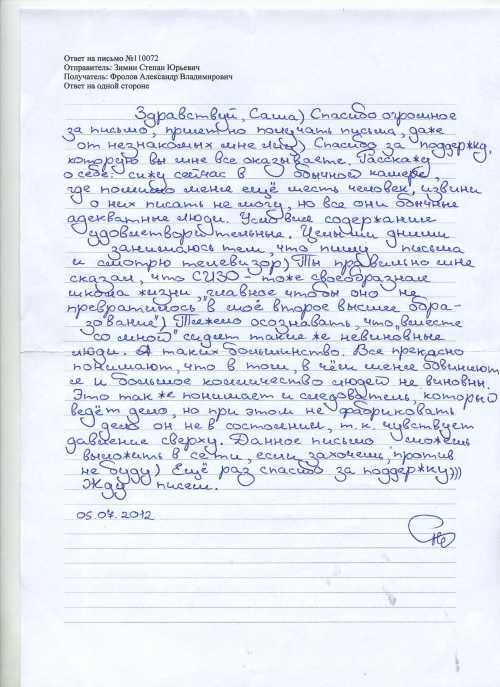 Ответ на письмо №110072
Отправитель: Зимин Степан Юрьевич
Получатель: Фролов Александр Владимирович
Ответ на одной стороне
Здравствуй, Саша) Спасибо огромное
за письмо, приятно получать письма, даже
от незнакомых мне лиц) Спасибо за поддержку,
которую вы мне все оказываете. Расскажу
о себе: сижу сейчас в обычной камере,
где помимо меня ещё шесть человек, извини
о них писать не могу, но все они обычные
адекватные люди. Условия содержания
удовлетворительные. Целыми днями
занимаюсь тем, что пишу письма
и смотрю телевизор) Ты правильно мне
сказал, что СИЗО - тоже своеобразная
школа жизни, главное чтобы оно не
превратилось "в моё второе высшее обра-
зование") Тяжело осознавать, что "вместе
со мной" сидят такие же невиновные
люди. А таких большинство. Все прекрасно
понимают, что в том, в чём меня обвиняют
я и большое количество людей не виновны.
Это так же понимает и следователь, который
ведёт дело, но при этом не фабриковать
дело он не в состоянии, т.к. чувствует
давление сверху. Данное письмо можешь
выложить в сети, если захочешь, против
не буду) Ещё раз спасибо за поддержку)))
Жду писем.
05.07.2012